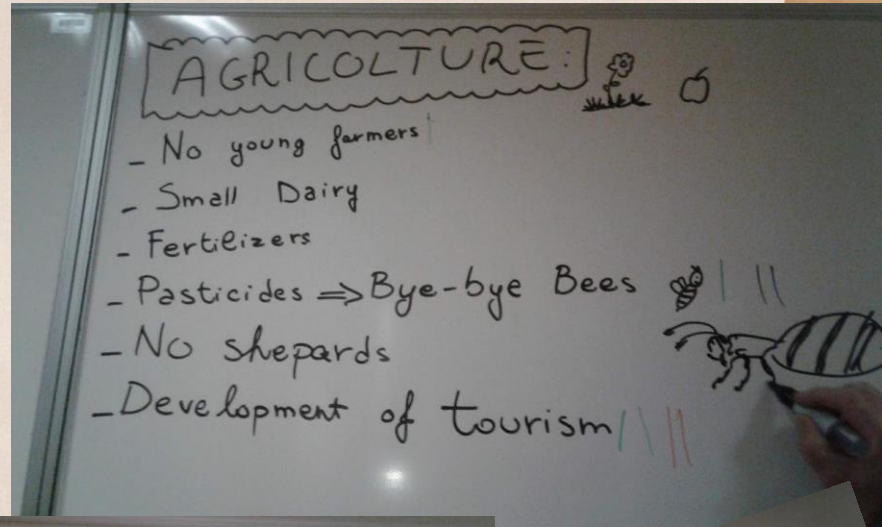 AGRICOLTURE:
- No young farmers
- Small Dairy
- Fertilizers
- Pasticides => Bye-bye Bees
- No shepards
- Development of tourism